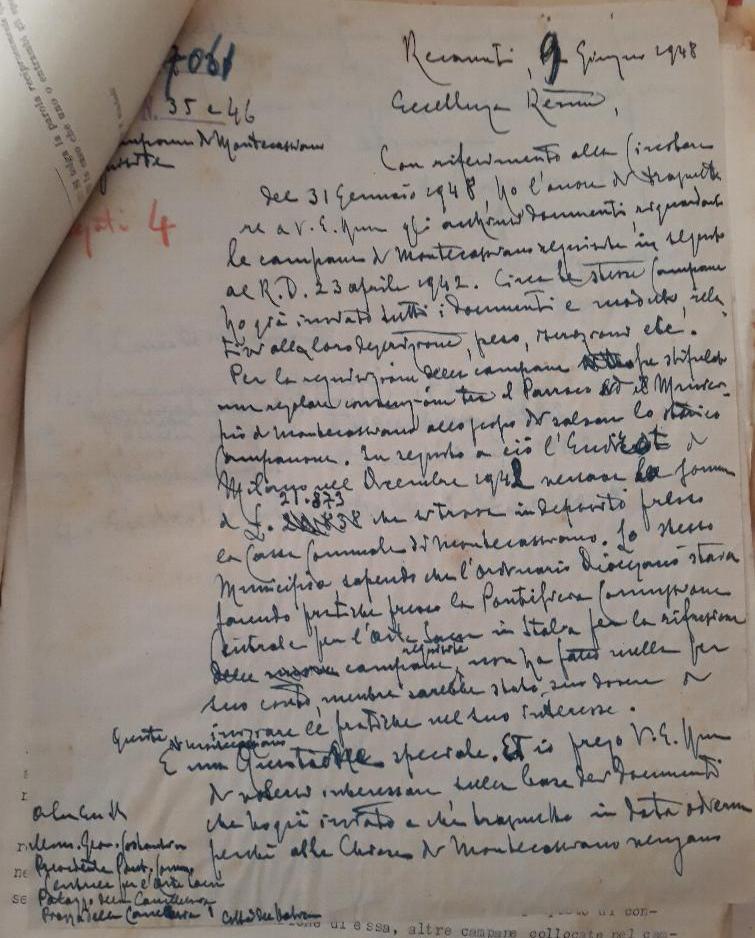 7061
N. 35 e 46
Campane di Montecassiano
requisite
Allegati 4
Recanati, 9 Giugno 1948
Eccellenza Rev.ma,
Con riferimento alla Circolare
del 31 Gennaio 1948, ho l'onore di trasmette
re a V. E. Rev.ma gli acclusi documenti riguardanti
le campane di Montecassiano requisite in seguito
al R. D. 23 aprile 1942. Circa le stesse Campane
ho già inviato tutti i documenti e modulo, rela
tivi alla loro descrizione, peso, iscrizioni etc.
Per la requisizione delle campane fu stipulata
una regolare convenzione tra il Parroco ed il Munici-
pio di Montecassiano allo scopo di salvare lo storico
Campanone. In seguito a ciò l'Endirot di
Milano nel Dicembre 1942 versava la somma
21.873
di £. che si trova in deposito presso
la Cassa Comunale di Montecassiano. Lo stesso
Municipio, sapendo che l'Ordinario Diocesano stava
facendo pratiche presso la Pontificia Commissione
Centrale per l'Arte Sacra in Italia per la rifusione
requisite
delle campane, non ha fatto nulla per
suo conto, mentre sarebbe stato suo dovere di
iniziare le pratiche nel suo interesse.
Questa di Montecassiano
È una questione speciale. Ed io prego V. E. Rev.ma
di volersi interessare sulla base dei documenti
che ho già inviato e che trasmetto in data odierna
perché alla Chiesa di Montecassiano vengano
Mons. Giov. Costantini
Presidente Pont. Comm.
Centrale per l'Arte Sacra
Palazzo della Cancelleria
Piazza della Cancelleria Città del Vaticano
di con-
ione di essa, altre campane collocate nel cam-